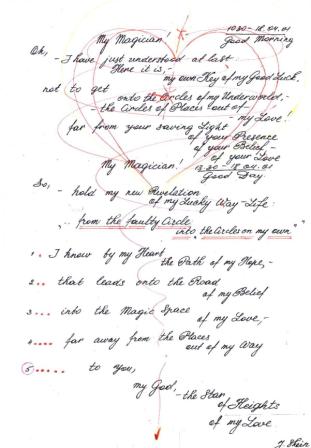 10.30 - 18.04.01
My Magician! Good Morning
Oh,
- I have just understood at last
Here it is,
my own Key of my Good Luck,
not to get
onto the Circles of my Underworld, -
- the Circles of Places out of -
- my Love!
far from your saving Light
of your Presence
of your Belief -
of your Love
My Magician! 13.30 - 18.04.01
Good Day
So,
- hold my new Revelation
of my Lucky Way-Life:
".. from the faulty Circle
into "the Circles on my own""
1.. I know by my Heart
the Path of my Hope, -
2.. that leads onto the Road
of my Belief
3... into the Magic Space
of my Love, -
4.... far away from the Places
out of my Way
5..... to you,
my God,
- the Star
of Heights
of my Love
J. Shein